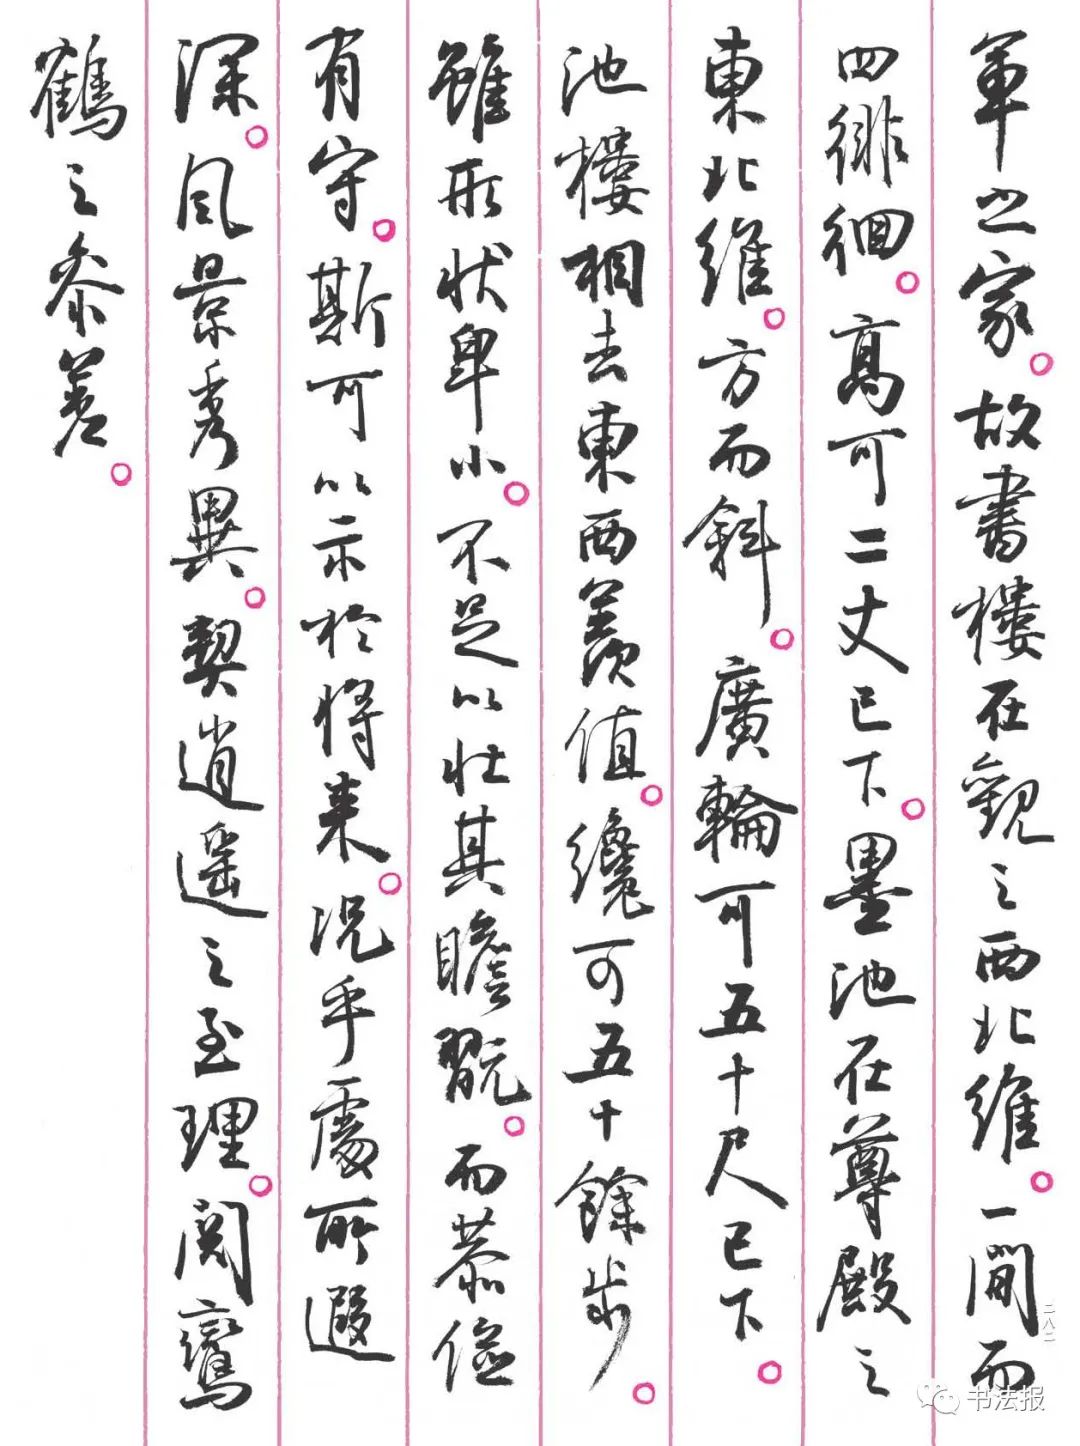 軍之家。故書樓在觀之西北維。一間而
四徘徊。高可二丈已下。墨池在尊殿之
東北維。方而斜。廣輪可五十尺已下。
池樓相去東西羨值。纔可五十餘步。
雖形狀卑小。不足以壯其瞻翫。而恭儉
有守。斯可以示於將来。況乎處所遐
深。風景秀異。契逍遥之至理。閱鸞
鶴之参差。
二八二
书法报